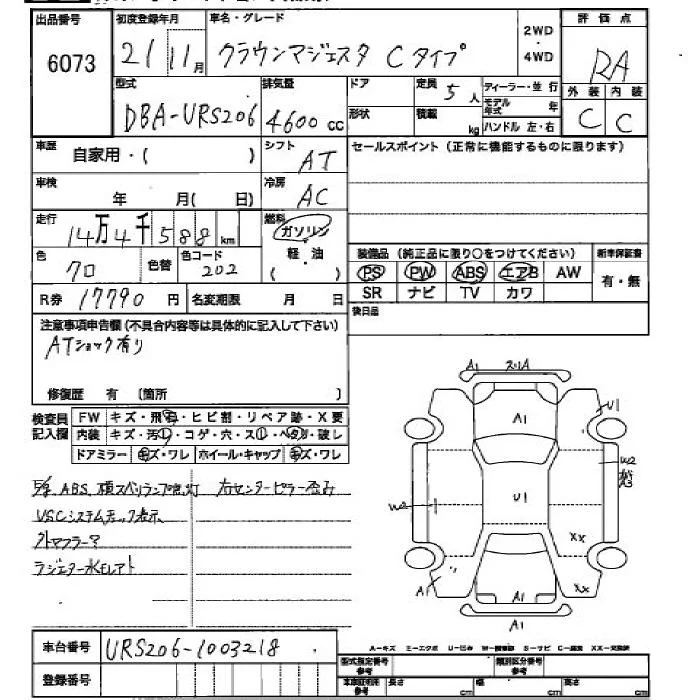 出品番号 初度登録年月 車名・グレード 2WD・4WD 評価点
6073 21 11月 クラウンマジェスタ Cタイプ RA
型式 排気量 ドア 定員 5人 ディーラー・並行 外装 内装
DBA-URS206 4600cc 形状 積載 kg モデル年式 年 C C
ハンドル 左・右
車歴 自家用・( ) シフト AT セールスポイント(正常に機能するものに限ります)
車検 年 月( 日) 冷房 AC
走行 14万4千588km 燃料 ガソリン・軽・油( )
装備品(純正品に限り○をつけてください) 新車保証書
色 クロ 色替 色コード 202 PS PW ABS エアB AW 有・無
R券 17790円 名変期限 月 日 SR ナビ TV カワ
後日品
注意事項申告欄(不具合内容等は具体的に記入して下さい)
ATショック有り
修復歴 有 (箇所 )
検査員記入欄 FW キズ・飛石・ヒビ割・リペア跡・X要
内装 キズ・汚れ・コゲ・穴・スレ・ヘタリ・破レ
ドアミラー キズ・ワレ ホイール・キャップ キズ・ワレ
ABS, 横スベリランプ点灯 右センターピラー歪み
VSCシステムチェック表示
外マフラー
ラジエター水モレアト
A1 スリA
U1
A1
W2
ガA3
W2
U1
XX
A1
XX
A1
車台番号 URS206-1003218
登録番号
A-キズ エ-エクボ U-凹み W-補修跡 S-サビ C-腐食 XX-交換済
型式指定番号 参考 類別区分番号 参考
車庫証明用 参考 長さ cm 幅 cm 高さ cm